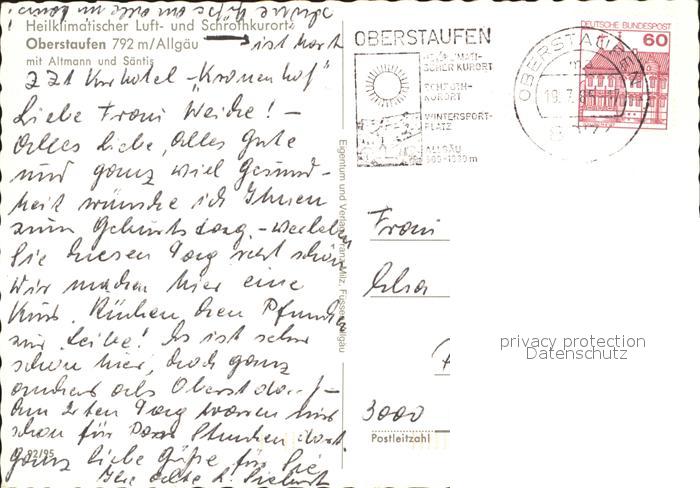 Heilklimatischer Luft- und Schrothkurort
Oberstaufen 792 m/Allgäu
mit Altmann und Säntis
ist hart
zZt Kurhotel „Kronenhof"
Liebe Frau Weihe! –
Alles Liebe, alles Gute
und ganz viel Gesund-
heit wünsche ich Ihnen
zum Geburtstag. – Verleben
Sie diesen Tag recht schön
Wir machen hier eine
Kur. Rücken den Pfunden
zur Leibe! Es ist sehr
schön hier, doch ganz
anders als Oberstdorf –
Am 2ten Tag waren wir
schon für paar Stunden dort.
Ganz liebe Grüße für Sie
Ihre alte
92/95
Eigentum und Verlag Franz Milz, Füssen/Allgäu
OBERSTAUFEN
HEILKLIMATI-
SCHER KURORT
SCHROTH-
KURORT
WINTERSPORT-
PLATZ
ALLGÄU
OBERSTAUFEN
19.7.85-17
DEUTSCHE BUNDESPOST
60
Frau
Elsa
3000
Postleitzahl
privacy protection
Datenschutz